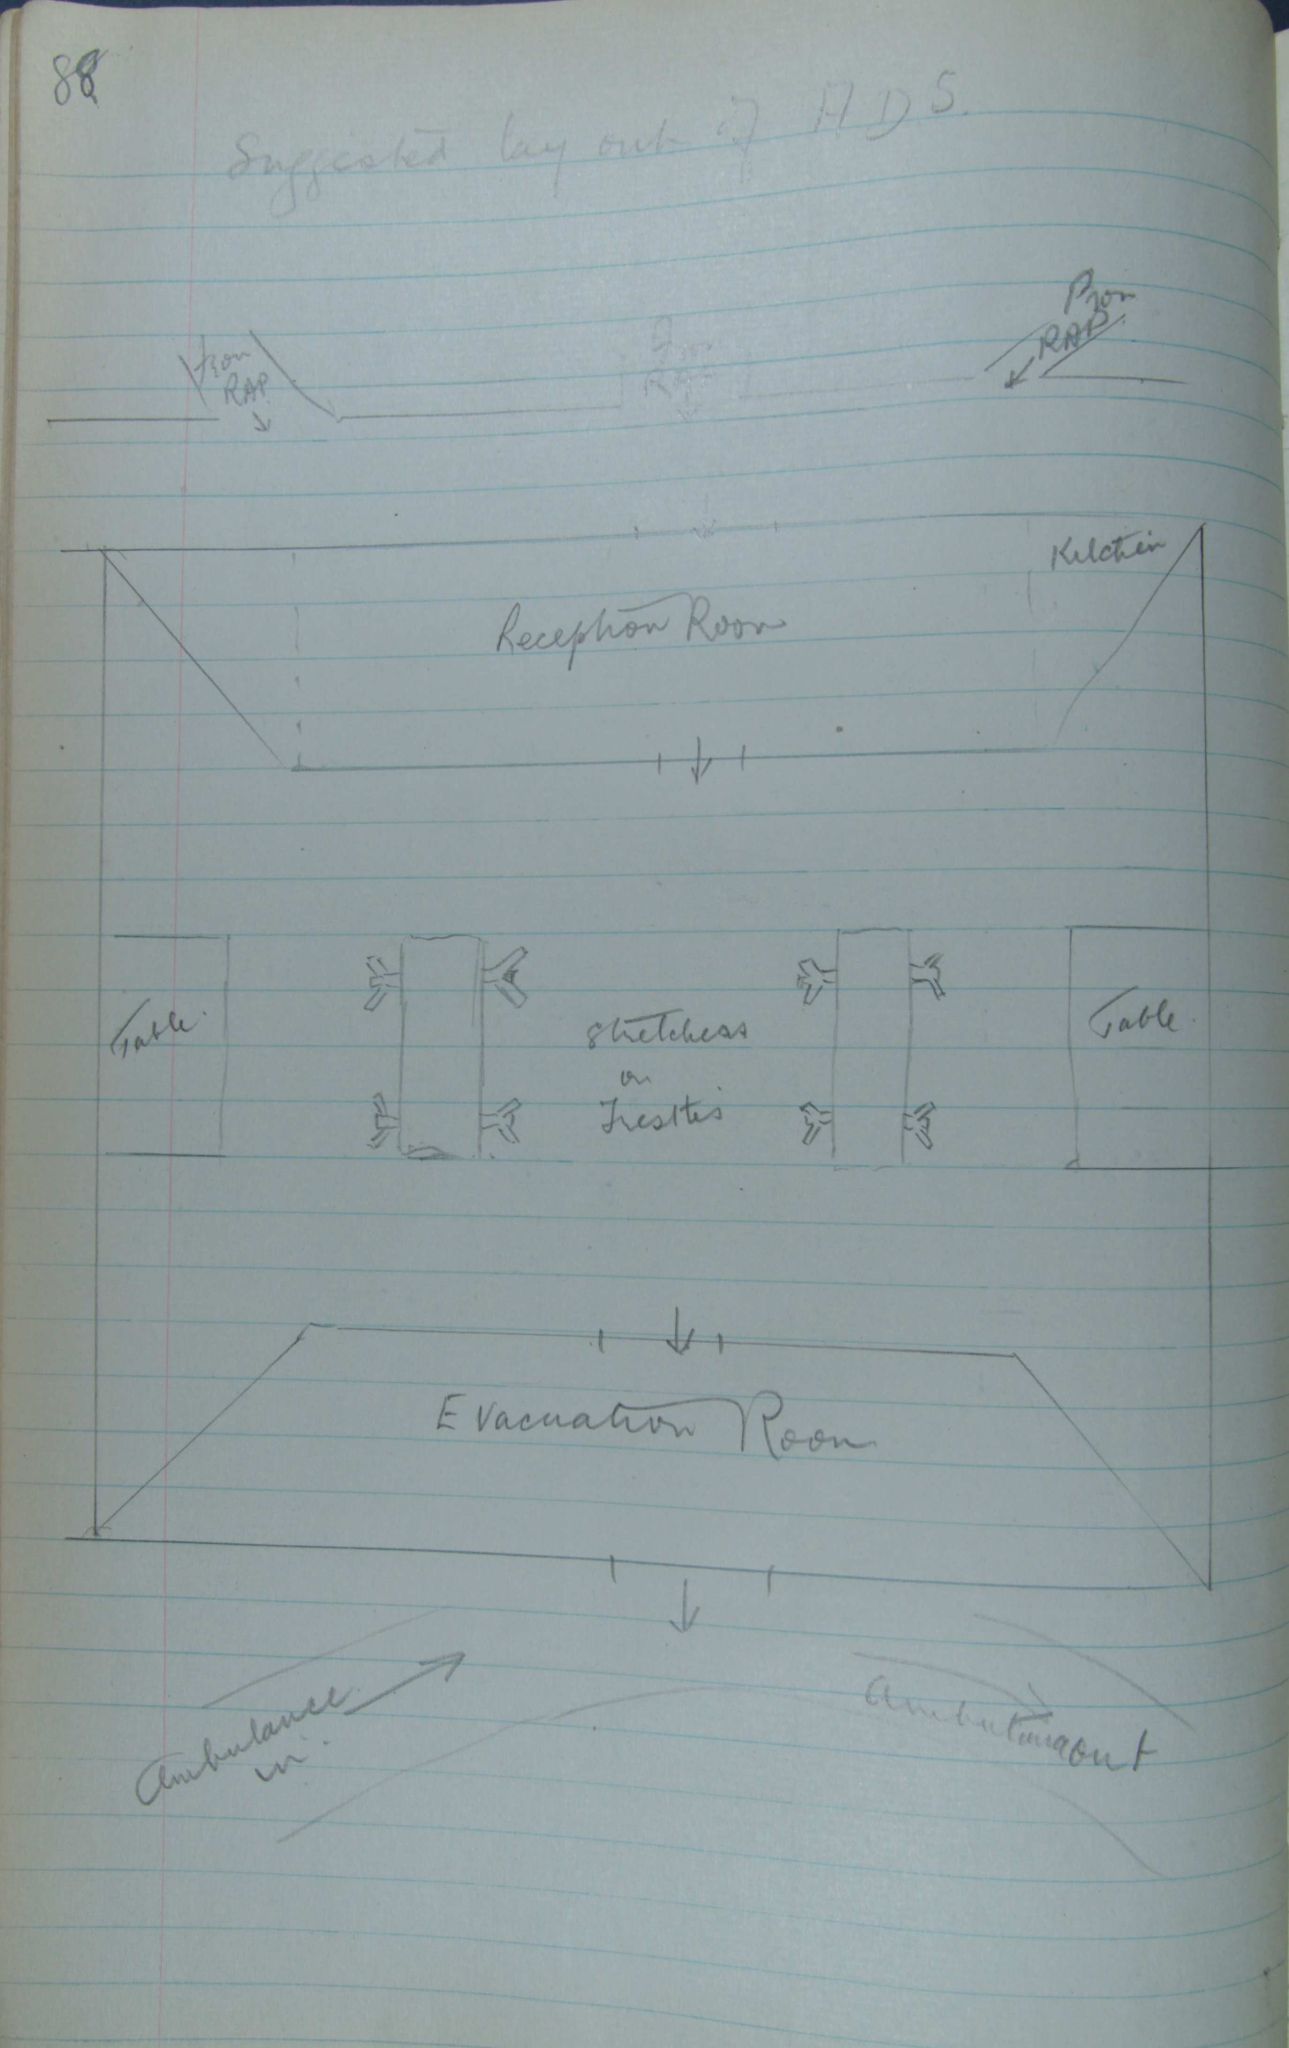 88
Suggested lay out of A D S.
from
RAP
From
RAP
From
RAP
Kitchen
Reception Room
Table.
Stretchers
on
Trestles
Table.
Evacuation Room
Ambulance
in.
Ambulance out